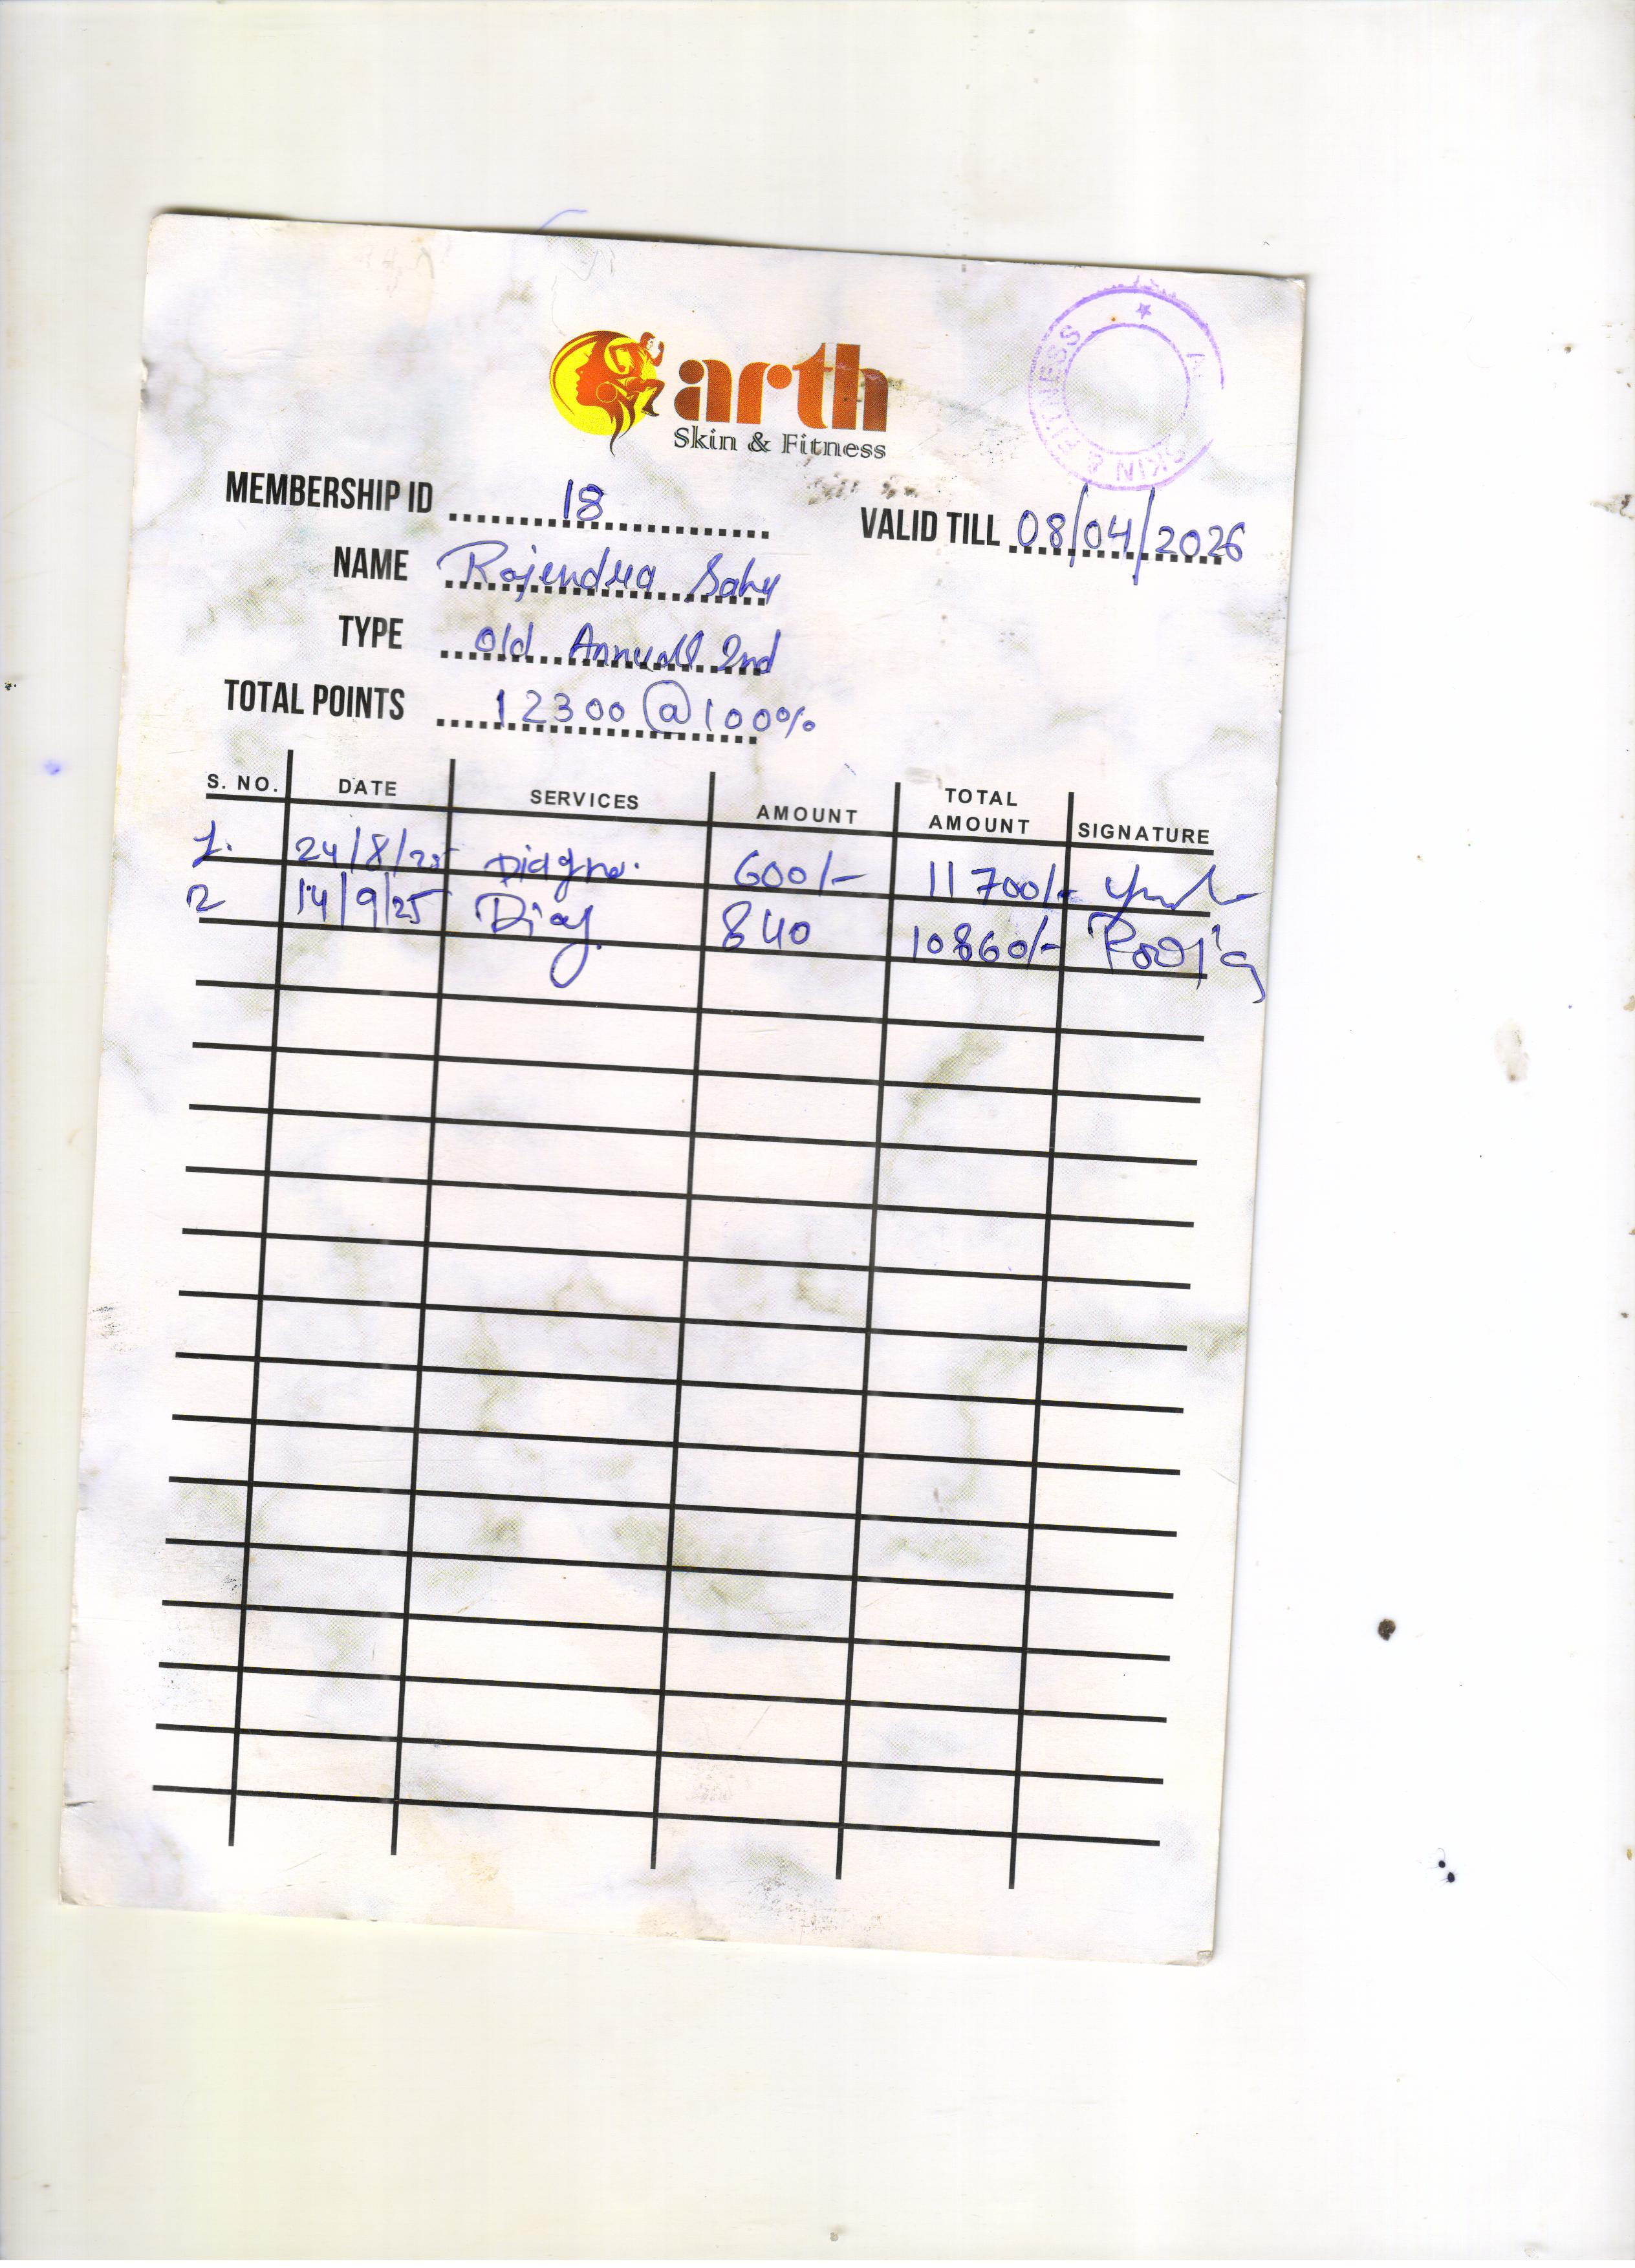 arth
Skin & Fitness
SKIN & FITNESS
MEMBERSHIP ID 18
VALID TILL 08/04/2026
NAME Rajendra Sahu
TYPE Old Annuall 2nd
TOTAL POINTS 12300 @ 100%
S. NO. DATE SERVICES AMOUNT TOTAL AMOUNT SIGNATURE
1. 24/8/25 Diagno. 600/- 11700/-
2 14/9/25 Diag. 840 10860/- Pooja